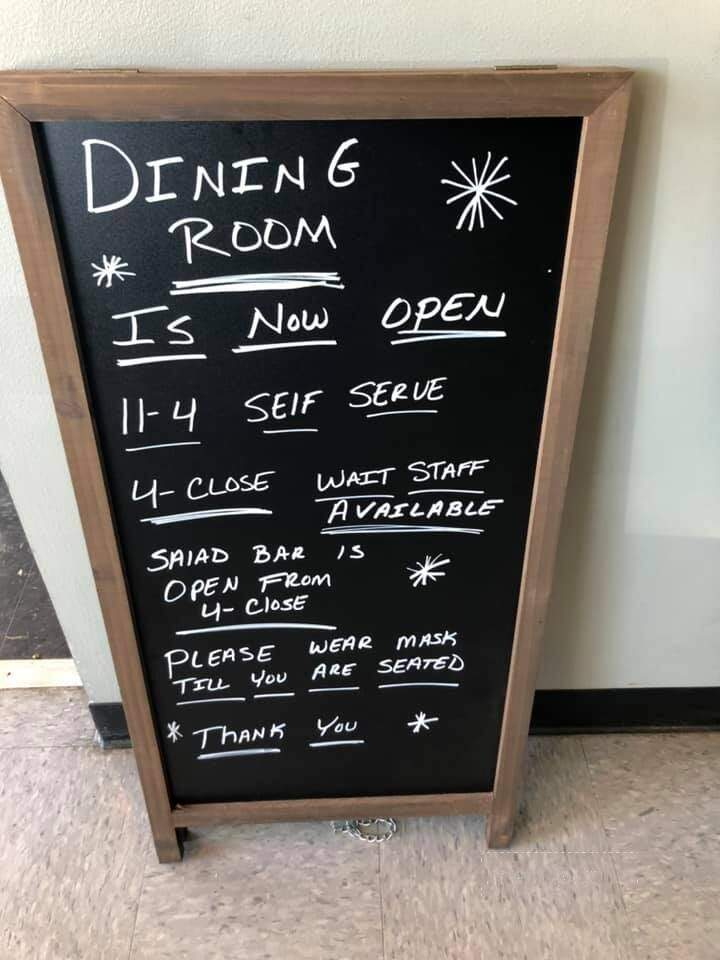 DINING
ROOM
IS NOW OPEN
11-4 SElF SERVE
4-CLOSE WAIT STAFF
AVAILABLE
SAlAD BAR IS
OPEN FROM
4-ClOSE
PLEASE WEAR MASK
TILL YOU ARE SEATED
* THANK YOU *